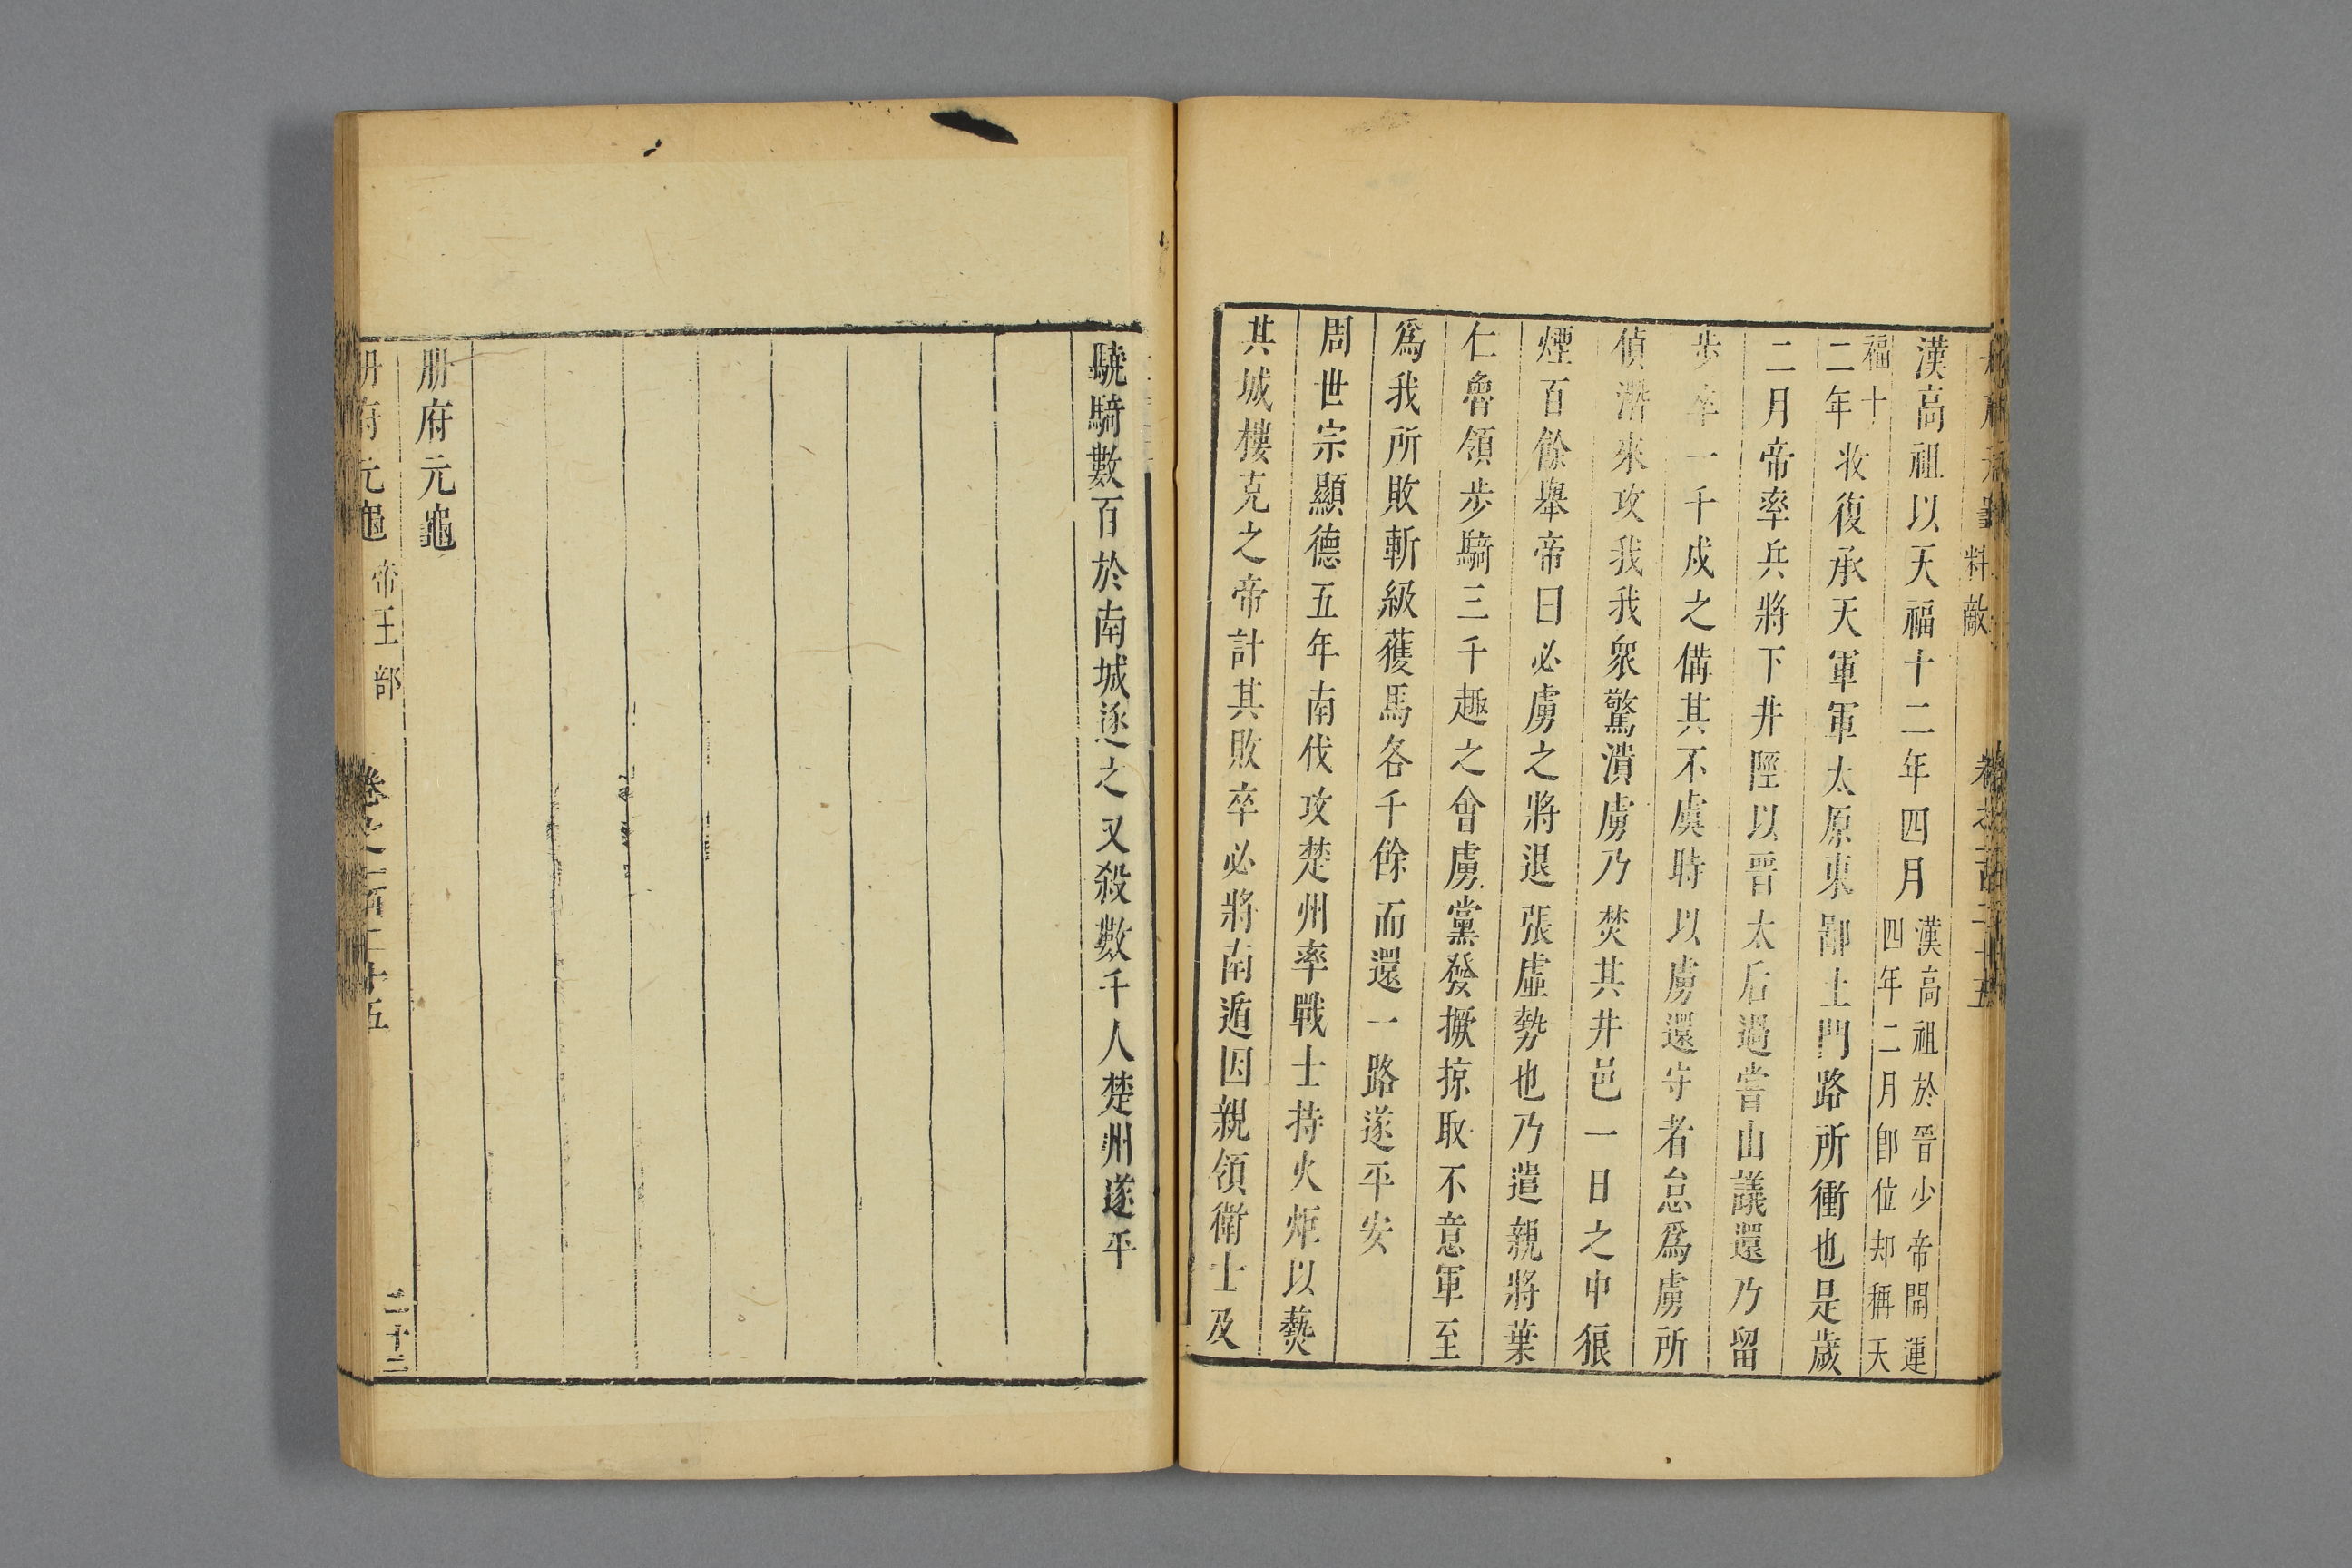 料敵
漢高祖以天福十二年四月漢高祖於晉少帝開運四年二月卽位却稱天
福十二年收復承天軍軍太原東鄙土門路所衝也是歲
二月帝率兵將下井陘以晉太后過常山議還乃留
步卒一千戍之備其不虞時以虜還守者怠爲虜所
偵潛來攻我我衆驚潰虜乃焚其井邑一日之中狼
煙百餘舉帝曰必虜之將退張虛勢也乃遣親將葉
仁魯領步騎三千趣之會虜黨發撅掠取不意軍至
爲我所敗斬級獲馬各千餘而還一路遂平安
周世宗顯德五年南伐攻楚州率戰士持火炬以爇
其城樓克之帝計其敗卒必將南遁因親領衛士及
驍騎數百於南城逐之又殺數千人楚州遂平
册府元龜
册府元龜 帝王部 卷之一百二十五 二十二